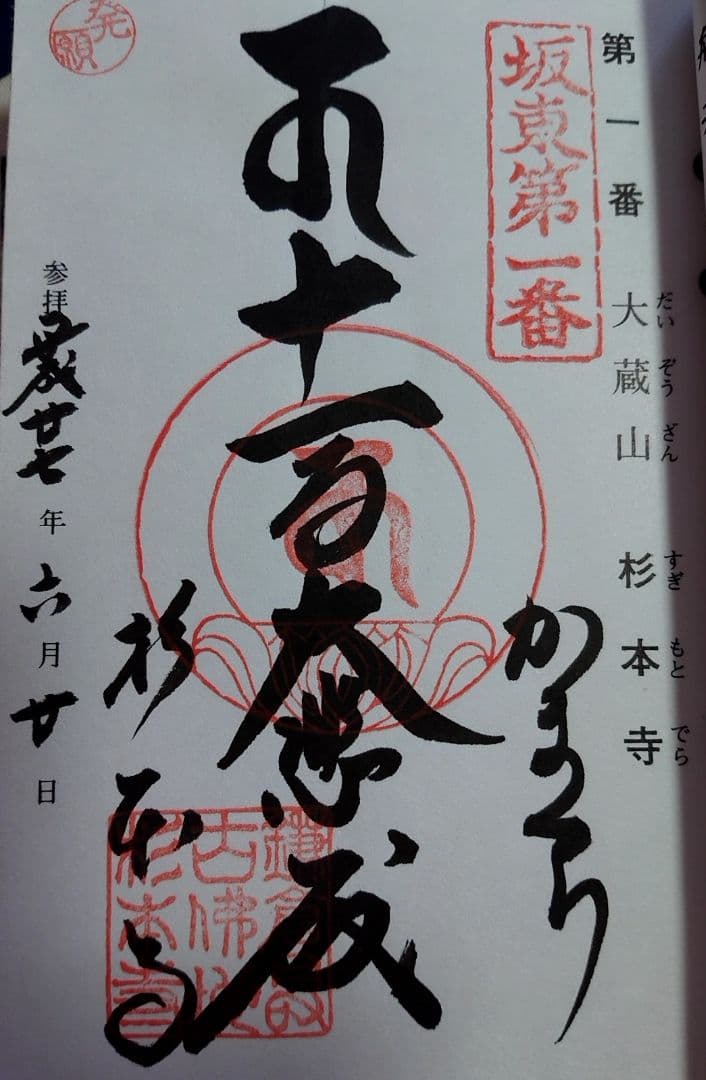 第一番 大蔵山 杉本寺
だいぞうざん すぎもとでら
坂東第一番
かまくら
十一面大悲殿
杉本寺
鎌倉最
古佛地
杉本寺
発願
参拝 平成廿七年六月廿日